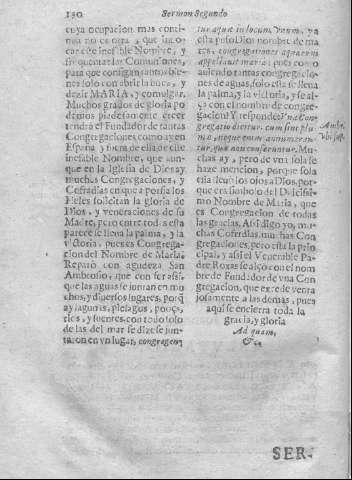 190 Sermon Segundo
cuya ocupacion mas conti-
nua no es otra, que inuo-
car este inefable Nombre, y
frequentar las Comuniones,
para que consigan tantos bie-
nes solo con abrir la boca, y
dezir MARIA, y comulgar.
Muchos grados de gloria po-
demos piadosamente creer
tendrá el Fundador de tantas
Congregaciones como ay en
España y fuera de ella de este
inefable Nombre, que aun-
que en la Iglesia de Dios ay
muchas Congregaciones, y
Cofradias en que à porfia los
Fieles solicitan la gloria de
Dios, y veneraciones de su
Madre, pero entre todas esta
parece se lleua la palma, y la
victoria, pues es Congrega-
cion del Nombre de Maria.
Reparò con agudeza San
Ambrosio, que con ser assi,
que las aguas se juntan en mu-
chos, y diuersos lugares, porq̃
ay lagunas, pielagos, pozos,
rios, y fuentes, con todo solo
de las del mar se dize se jun-
taron en vn lugar, congregen
tur aquæ in locum vnum, y a
esta puso Dios nombre de ma
res, congregationes aquarum
appellauit maria: pues como
auiendo tantas congregacio-
nes de aguas, solo esta se lleua
la palma, y la victoria, y se al-
ça con el nombre de congre-
gacion? Y responde: Vna Con-
gregatio dicitur, cum sint plu
ma, neque enim annumeran-
tur, quæ non conferuntur. Mu-
chas ay, pero de vna sola se
haze mencion, porque sola
esta lleuò los ojos a Dios, por-
que era simbolo del Dulcissi-
mo Nombre de Maria, que
es Congregacion de todas
las gracias. Assi digo yo, mu-
chas Cofradias, muchas Con
gregaciones, pero esta la prin
cipal, y assi el Venerable Pa-
dre Roxas se alçò con el nom
bre de Fundador de vna Con
gregacion, que excede venta
josamente a las demàs, pues
aqui se encierra toda la
gracia, y gloria
Ad quam,
&c.
Ambr.
vbi sup.
SER-